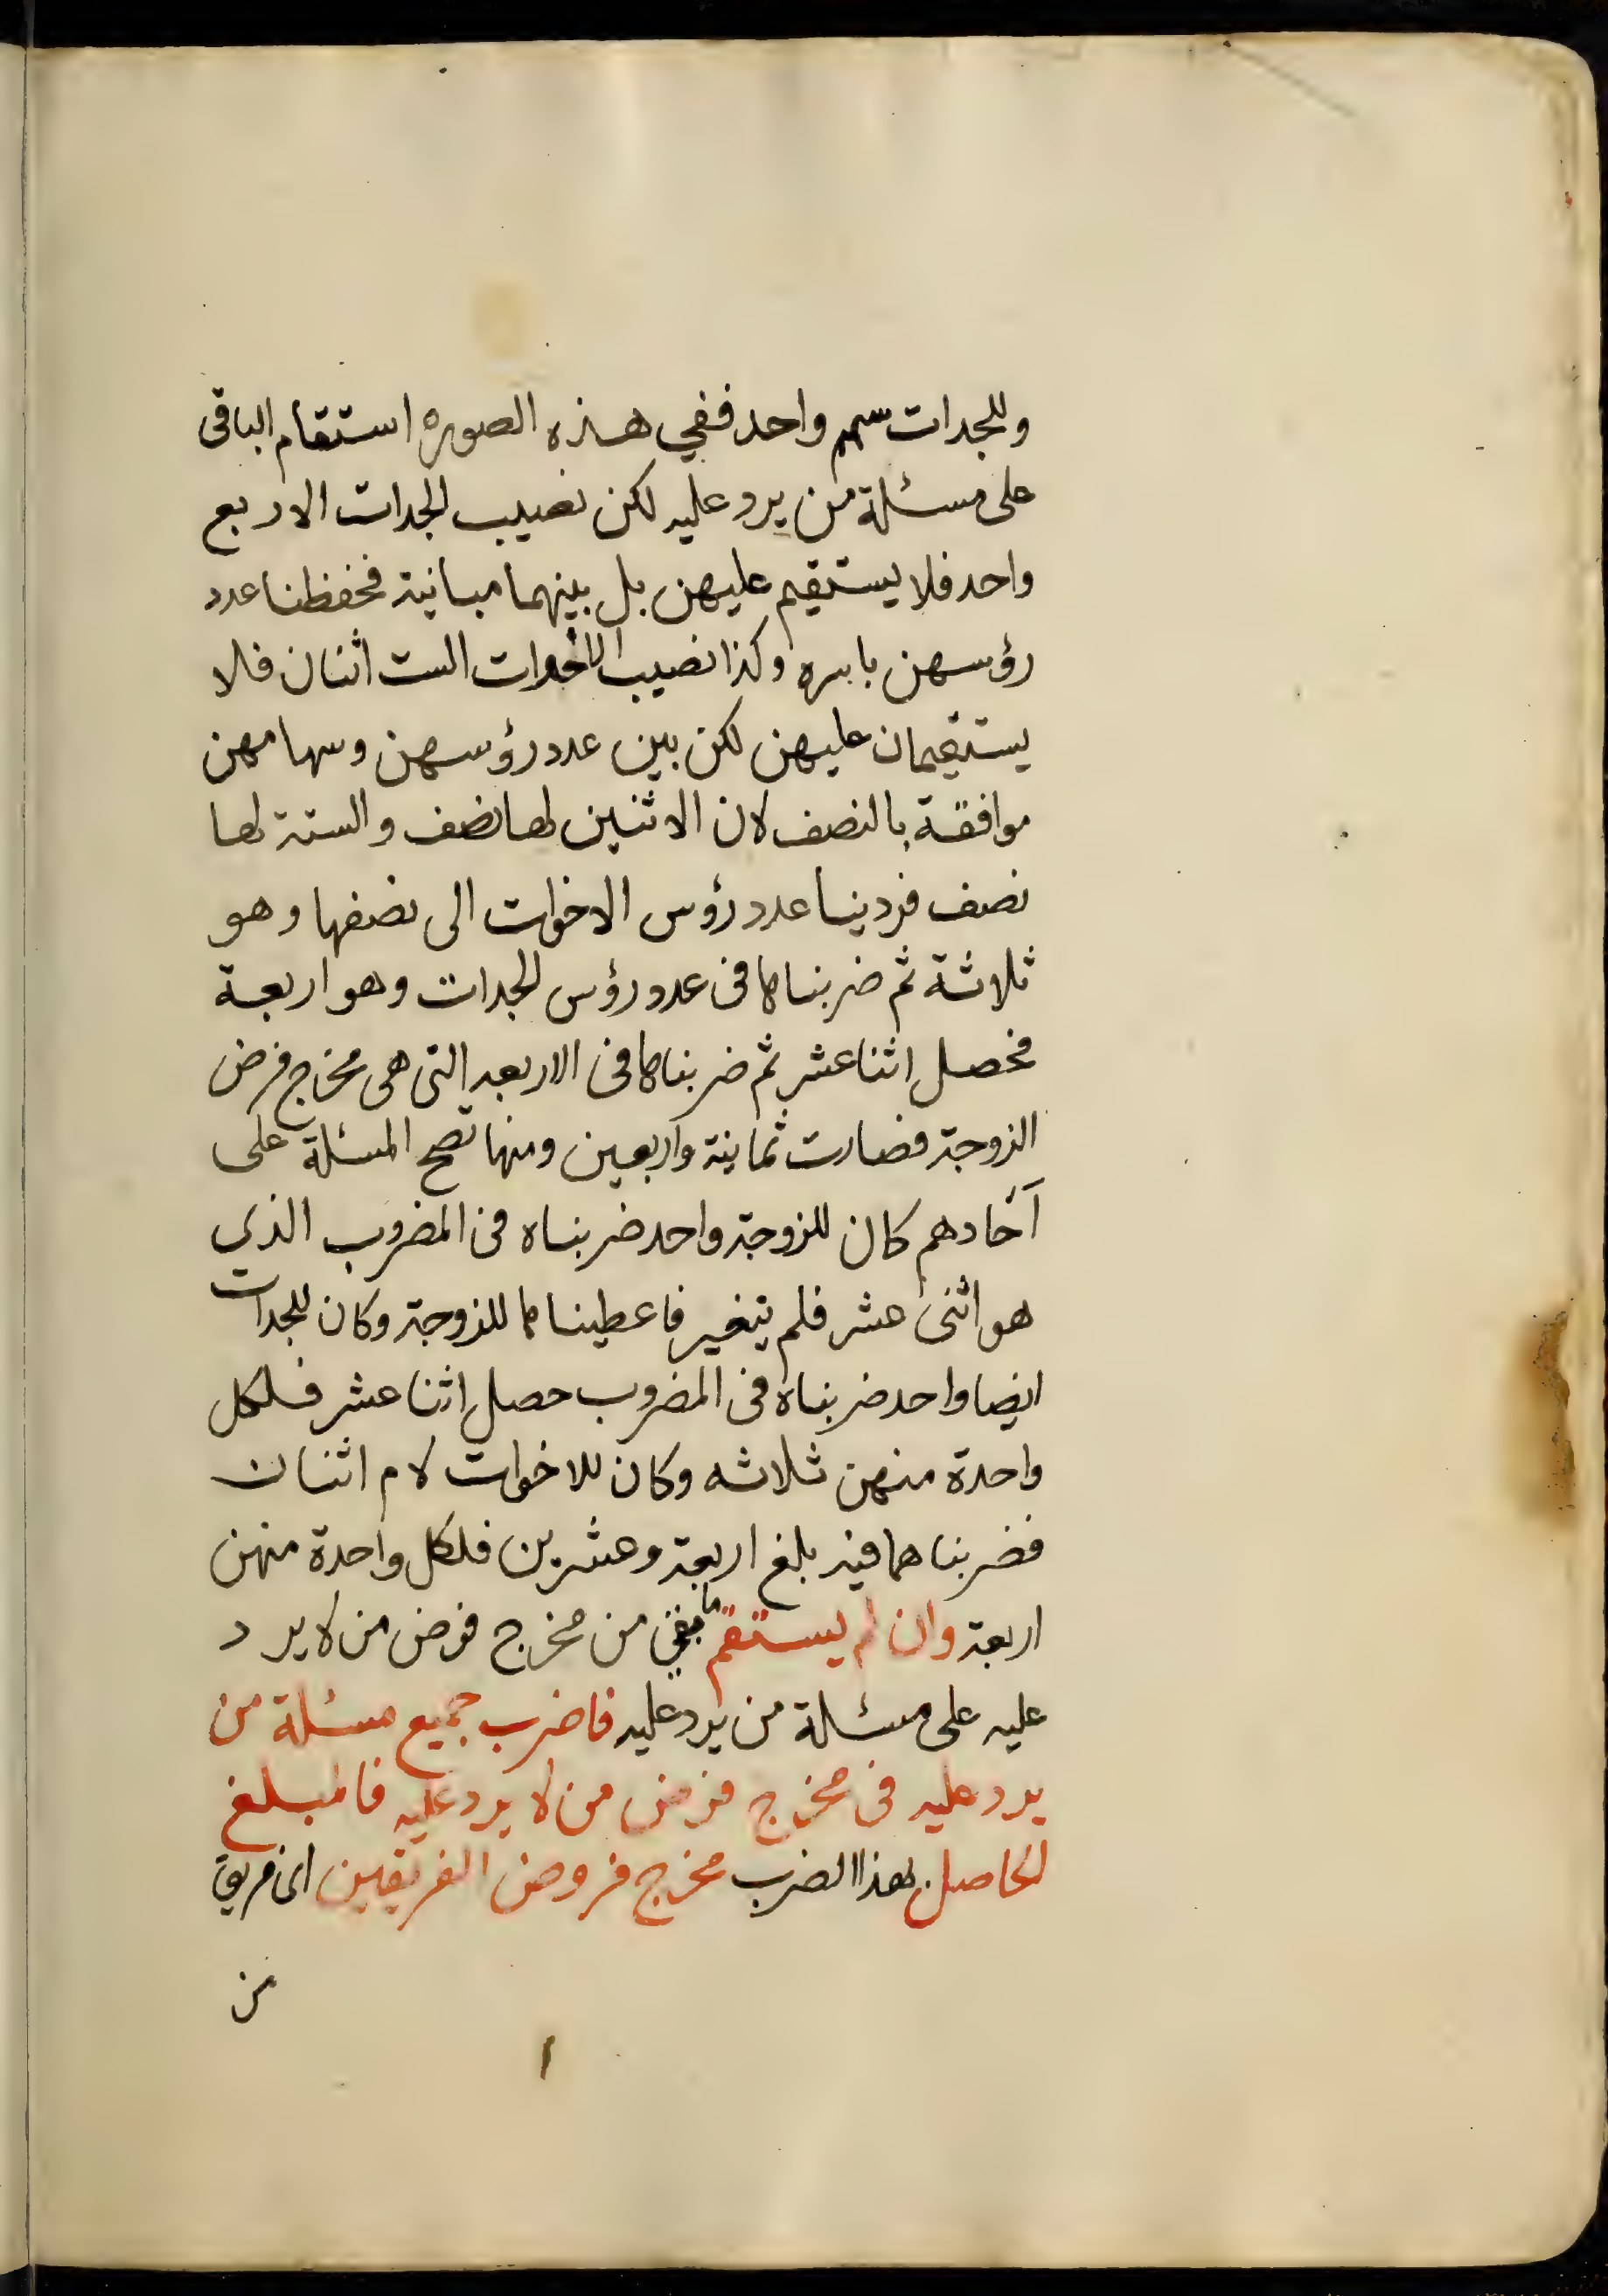 وللجدات سهم واحد ففي هذه الصوره استقام الباقى
على مسئلة من يرد عليه لكن نصيب الجدات الاربع
واحد فلا يستقيم عليهن بل بينهما مباينة فحفظنا عدد
رؤسهن باسره وكذا نصيب الاخوات الست اثنان فلا
يستقيمان عليهن لكن بين عدد رؤسهن وسهامهن
موافقة بالنصف لان الاثنين لها نصف والستة لها
نصف فردينا عدد رؤس الاخوات الى نصفها وهو
ثلاثة ثم ضربناها فى عدد رؤس الجدات وهو اربعة
فحصل اثنا عشر ثم ضربناها فى الاربعه التى هى مخرج فرض
الزوجة فصارت ثمانية واربعين ومنها تصح المسئلة على
آحادهم كان للزوجة واحد ضربناه فى المضروب الذى
هو اثنى عشر فلم يتغير فاعطيناها للزوجة وكان للجدات
ايضا واحد ضربناه فى المضروب حصل اثنا عشر فلكل
واحدة منهن ثلاثه وكان للاخوات لام اثنان
فضربناهما فيه بلغ اربعة وعشرين فلكل واحدة منهن
اربعة وان لم يستقم ما بقى من مخرج فرض من لا يرد
عليه على مسئلة من يرد عليه فاضرب جميع مسئلة من
يرد عليه فى مخرج فرض من لا يرد عليه فالمبلغ
الحاصل بهذا الضرب مخرج فروض الفريقين اى فريق
من
١